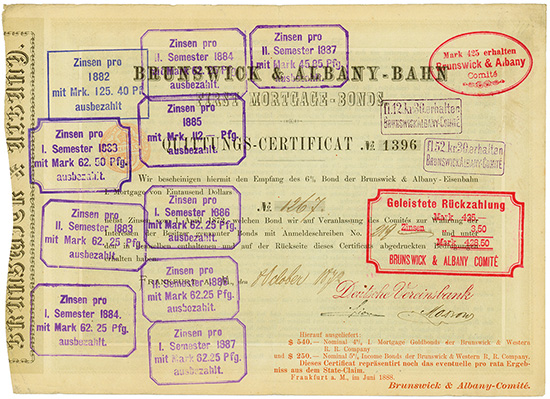 BRUNSWICK & ALBANY.
Zinsen pro
1882
mit Mrk. 125. 40 Pf
ausbezahlt.
Zinsen pro
II. Semester 1884
mit Mark 62.
ausbezahlt.
Zinsen pro
II. Semester 1887
mit Mark 45.85 Pfg.
ausbezahlt.
Mark 425 erhalten
Brunswick & Albany
Comité.
BRUNSWICK & ALBANY-BAHN
FIRST MORTGAGE-BONDS
fl. 12 kr. 30 erhalten
BRUNSWICK & ALBANY-COMITÉ
fl. 52 kr. 30 erhalten
BRUNSWICK & ALBANY-COMITÉ
Zinsen pro
1885
mit Mrk. 112. Pfg.
ausbezahlt.
QUITTUNGS-CERTIFICAT № 1396
Zinsen pro
I. Semester 1883
mit Mark 62. 50 Pfg.
ausbezahlt.
Wir bescheinigen hiermit den Empfang des 6% Bond der Brunswick & Albany - Eisenbahn
I. Mortgage von Eintausend Dollars
№
Geleistete Rückzahlung
Mark 425.
Zinsen 3,50
Mark 428.50
BRUNSWICK & ALBANY COMITÉ
Zinsen pro
II. Semester 1883
mit Mark 62. 25 Pfg.
ausbezahlt.
Zinsen pro
I. Semester 1886
mit Mark 62. 25 Pfg.
ausbezahlt.
nebst Zinsen seit 1. April welchen Bond wir auf Veranlassung des Comités zur Wahrung der
Interessen der Besitzer Bonds mit Anmeldeschreiben No. und unter
den in demselben enthaltenen und auf der Rückseite dieses Certificats abgedruckten Bedingungen
erhalten haben.
October 1872
Zinsen pro
II. Semester 1886
mit Mark 62.25 Pfg.
ausbezahlt.
Deutsche Vereinsbank
Zinsen pro
I. Semester 1884.
mit Mark 62. 25 Pfg.
ausbezahlt.
Zinsen pro
I. Semester 1887
mit Mark 62.25 Pfg.
ausbezahlt.
Hierauf ausgeliefert:
$ 540.— Nominal 4% I. Mortgage Goldbonds der Brunswick & Western
R. R. Company
und $ 250.— Nominal 5% Income Bonds der Brunswick & Western R. R. Company.
Dieses Certificat repräsentirt noch das eventuelle pro rata Ergeb-
niss aus dem State-Claim.
Frankfurt a. M., im Juni 1888.
Brunswick & Albany-Comité.